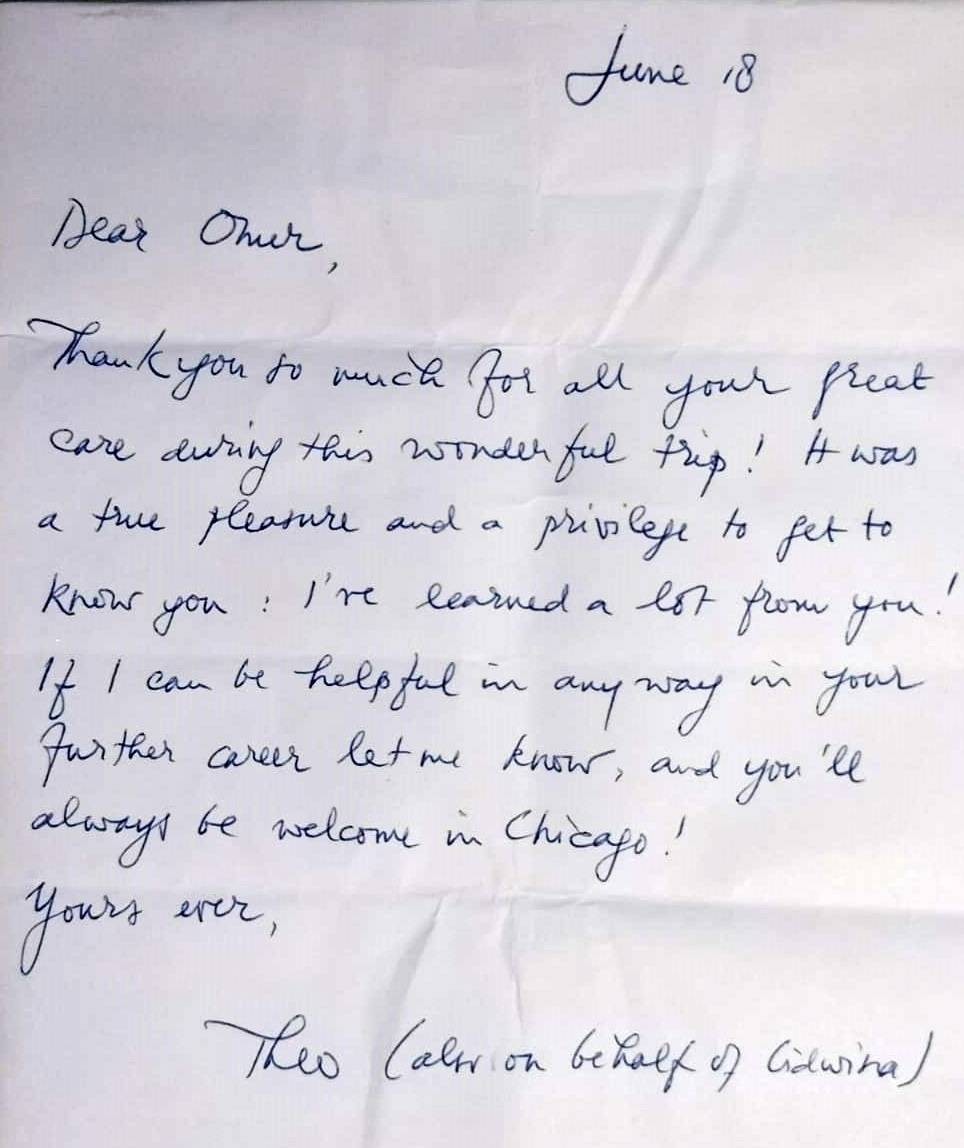 June 18
Dear Omer,
Thank you so much for all your great
care during this wonderful trip! It was
a true pleasure and a privilege to get to
know you : I've learned a lot from you!
If I can be helpful in any way in your
further career let me know, and you'll
always be welcome in Chicago!
Yours ever,
Theo (also on behalf of Lidwina)